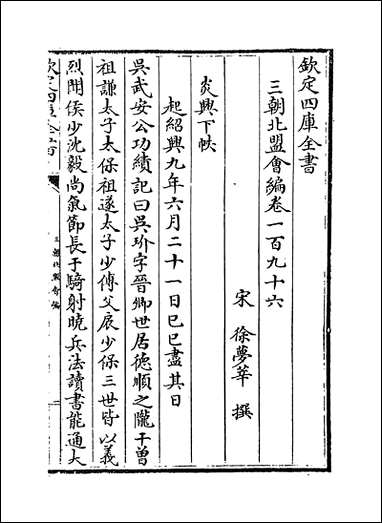 欽定四庫全書
三朝北盟會編卷一百九十六
宋 徐夢莘 撰
炎興下帙
起紹興九年六月二十一日巳巳盡其日
吳武安公功績記曰吳玠字晉卿世居德順之隴干曽
祖謙太子太保祖遂太子少傅父扆少保三世皆以義
烈聞侯少沈毅尚氣節長于騎射曉兵法讀書能通大
欽定四庫全書
三朝北盟會編
一